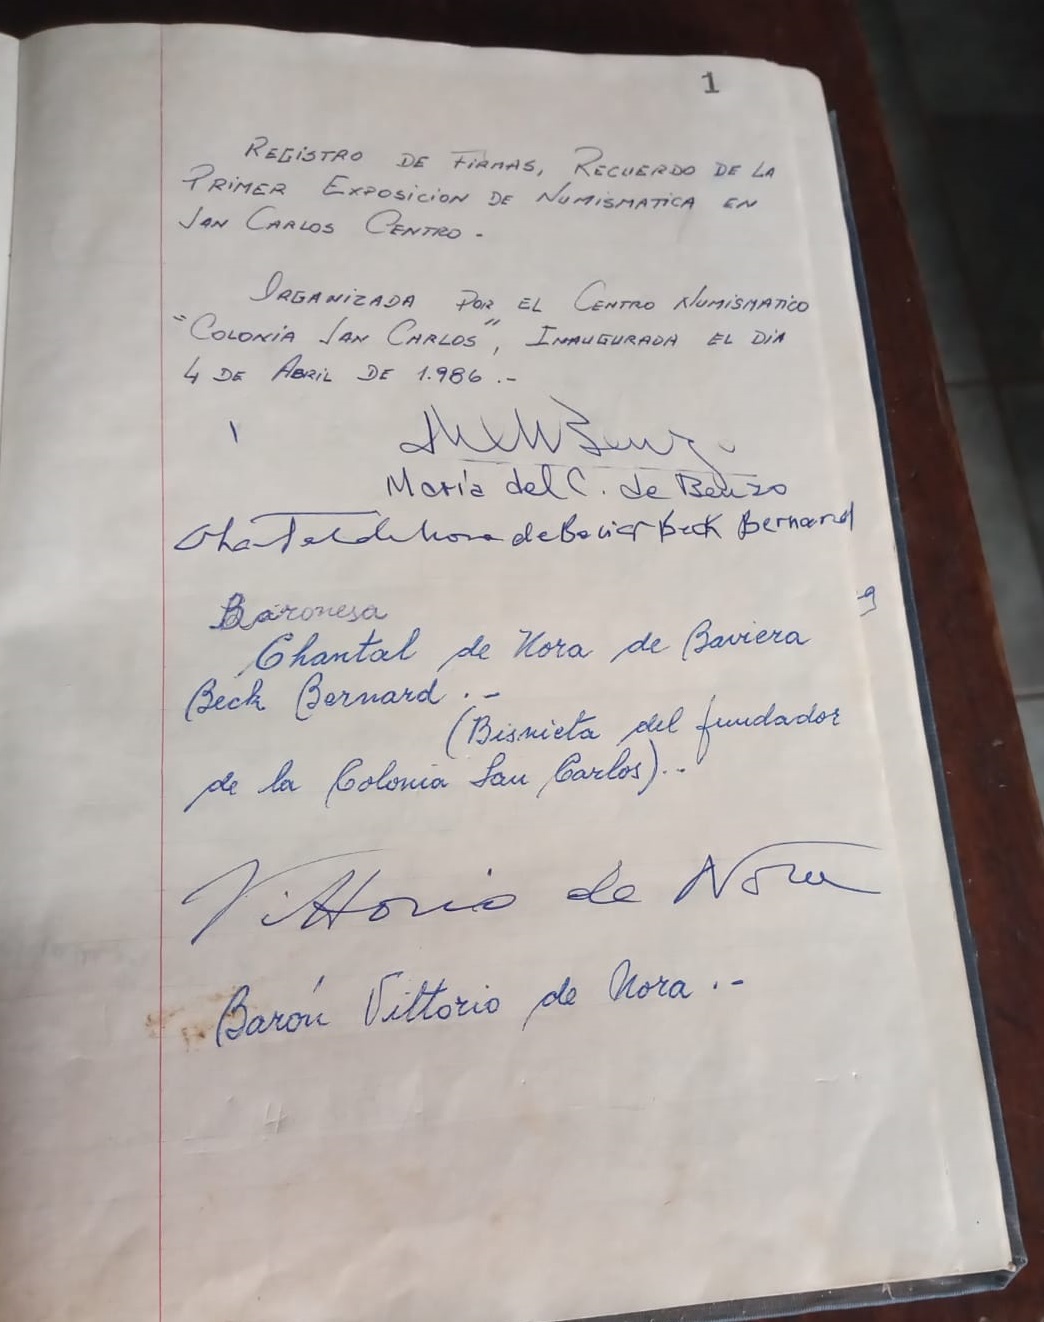 1
REGISTRO DE FIRMAS, RECUERDO DE LA
PRIMER EXPOSICION DE NUMISMATICA EN
SAN CARLOS CENTRO.-
ORGANIZADA POR EL CENTRO NUMISMATICO
"COLONIA SAN CARLOS", INAUGURADA EL DIA
4 DE ABRIL DE 1.986.-
María del C. de Benzo
de Nora de Bavier Beck Bernard
Baronesa
Chantal de Nora de Baviera
Beck Bernard.-
(Bisnieta del fundador
de la Colonia San Carlos).-
Vittorio de Nora
Barón Vittorio de Nora.-